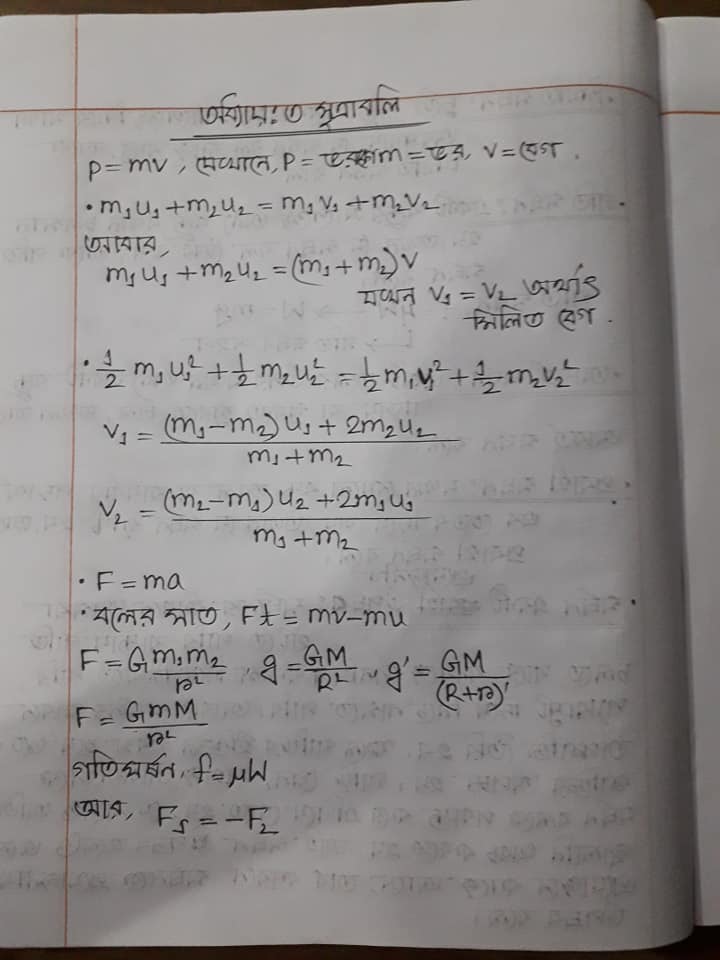 অধ্যায়ঃ৩ সূত্রাবলি
P = mv, যেখানে, P = ভরবেগ m = ভর, v = বেগ.
• m₁u₁ + m₂u₂ = m₁v₁ + m₂v₂
আবার,
m₁u₁ + m₂u₂ = (m₁ + m₂) V
যখন v₁ = v₂ অর্থাৎ
মিলিত বেগ.
• 1/2 m₁u₁² + 1/2 m₂u₂² = 1/2 m₁v₁² + 1/2 m₂v₂²
v₁ = (m₁ − m₂) u₁ + 2m₂u₂ / m₁ + m₂
v₂ = (m₂ − m₁) u₂ + 2m₁u₁ / m₁ + m₂
• F = ma
• বলের ঘাত, Ft = mv − mu
F = G m₁m₂ / r², g = GM / R², g′ = GM / (R+h)
F = GmM / r²
গতি ঘর্ষন, f = μW
আর, F₁ = −F₂